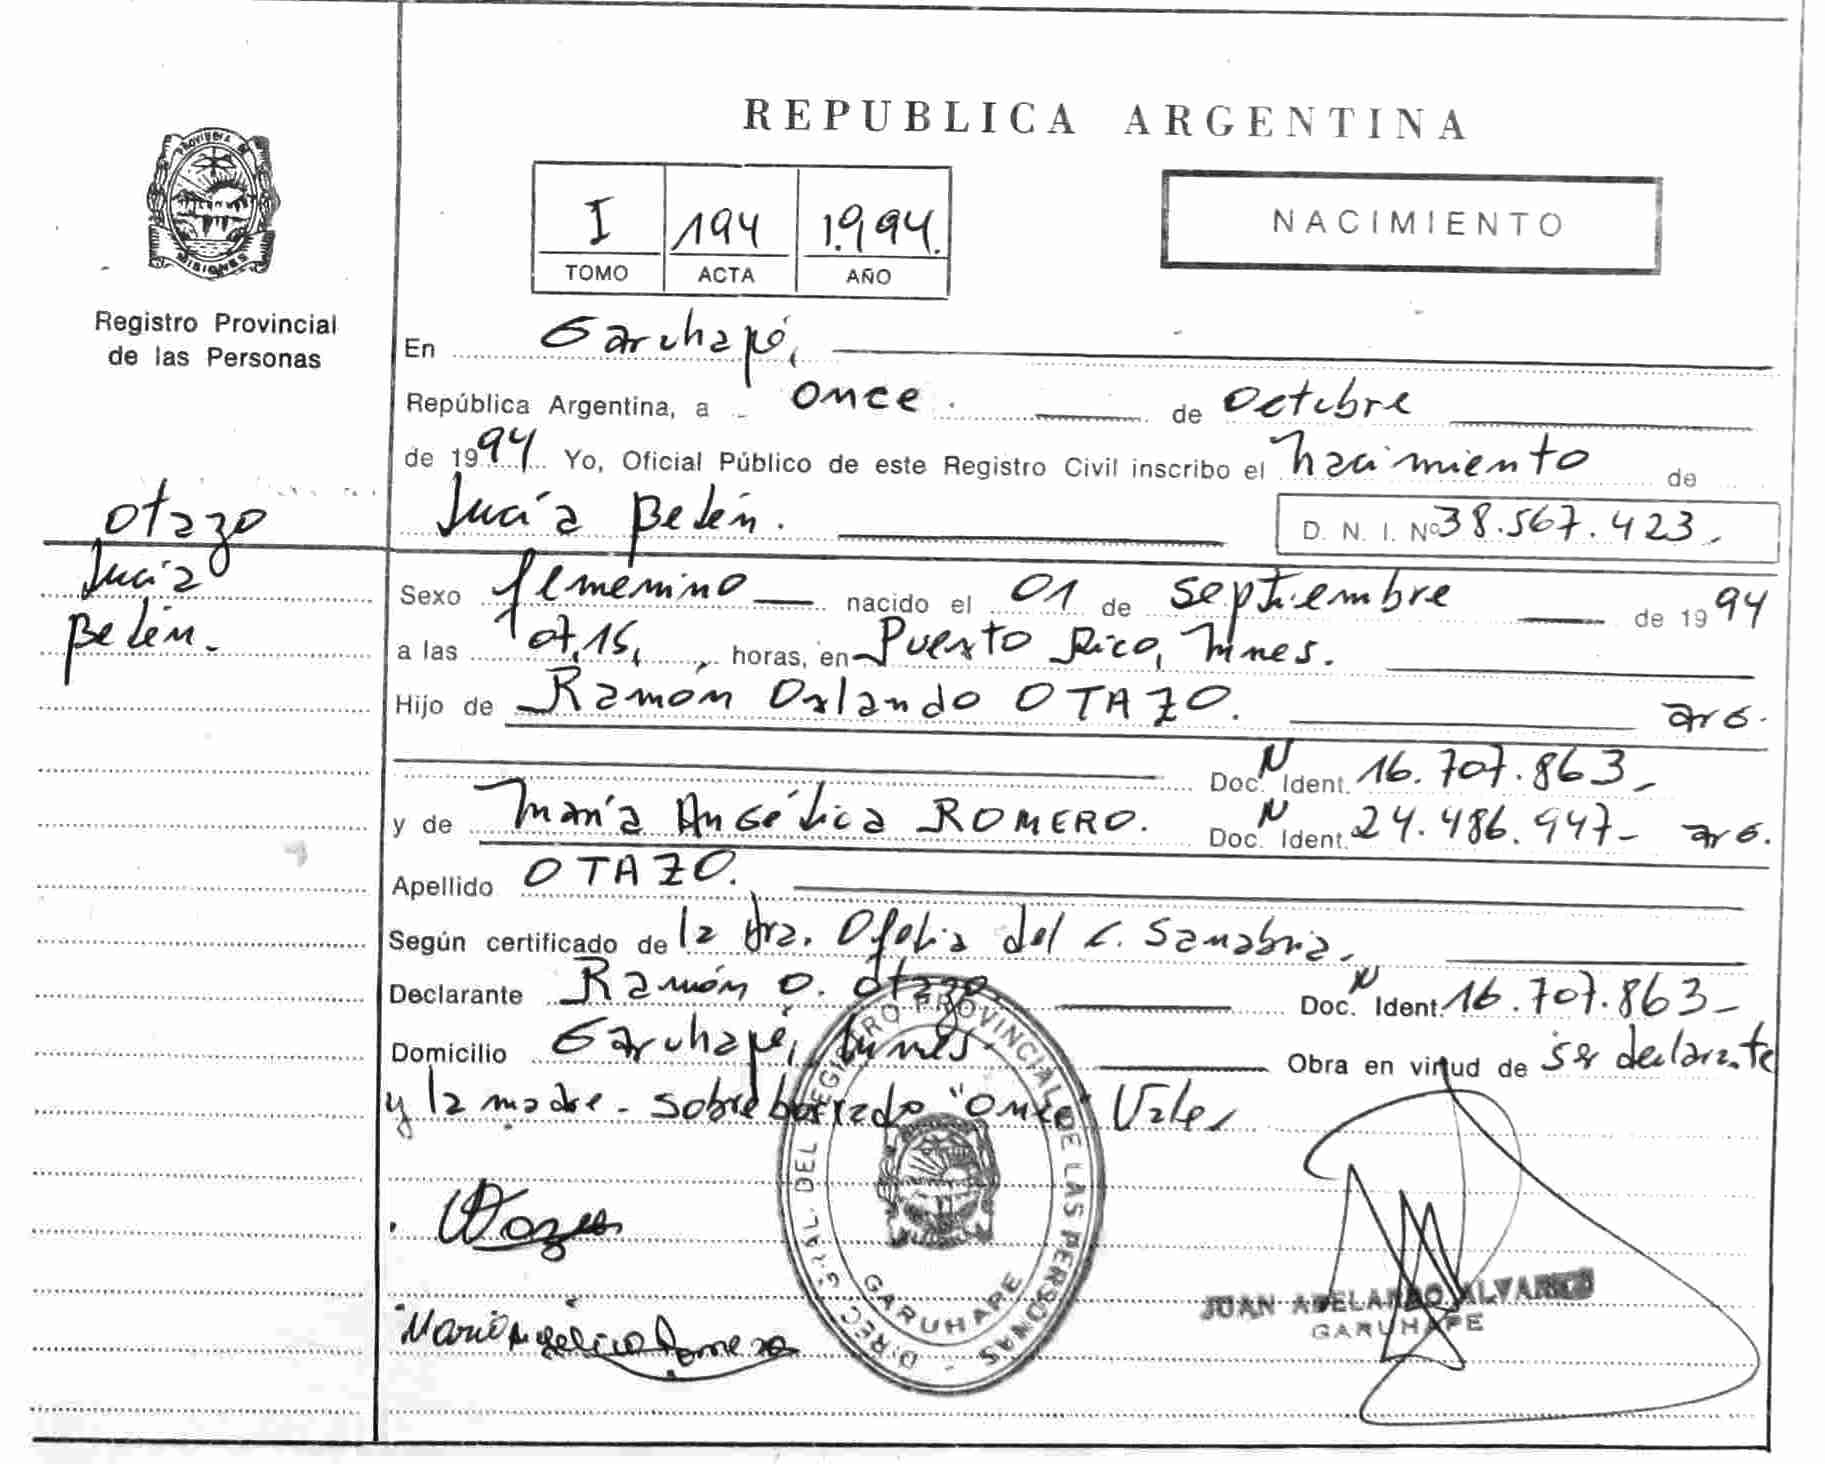 REPUBLICA ARGENTINA
PROVINCIA DE
MISIONES
Registro Provincial
de las Personas
I 194 1.994.
TOMO ACTA AÑO
NACIMIENTO
En Garuhapé,
República Argentina, a once de octubre
de 1994. Yo, Oficial Público de este Registro Civil inscribo el nacimiento de
Lucía Belén. D. N. I. Nº 38.567.423
otazo
Lucía
Belén.
Sexo femenino nacido el 01 de septiembre de 1994
a las 07,15, horas, en Puerto Rico, Mnes.
Hijo de Ramón Orlando OTAZO. arg.
Doc. N Ident. 16.707.863
y de María Angélica ROMERO. Doc. N Ident. 24.486.947 arg.
Apellido OTAZO.
Según certificado de la dra. Ofelia del C. Sanabria.
Declarante Ramón O. otazo. Doc. N Ident. 16.707.863
Domicilio Garuhapé, Mnes. Obra en virtud de ser declarante
y la madre - sobreborrado "Once" Vale
DIREC. GRAL. DEL REGISTRO PROVINCIAL DE LAS PERSONAS -
GARUHAPE
Maria Angélica Romero
JUAN ADELARDO ALVAREZ
GARUHAPE